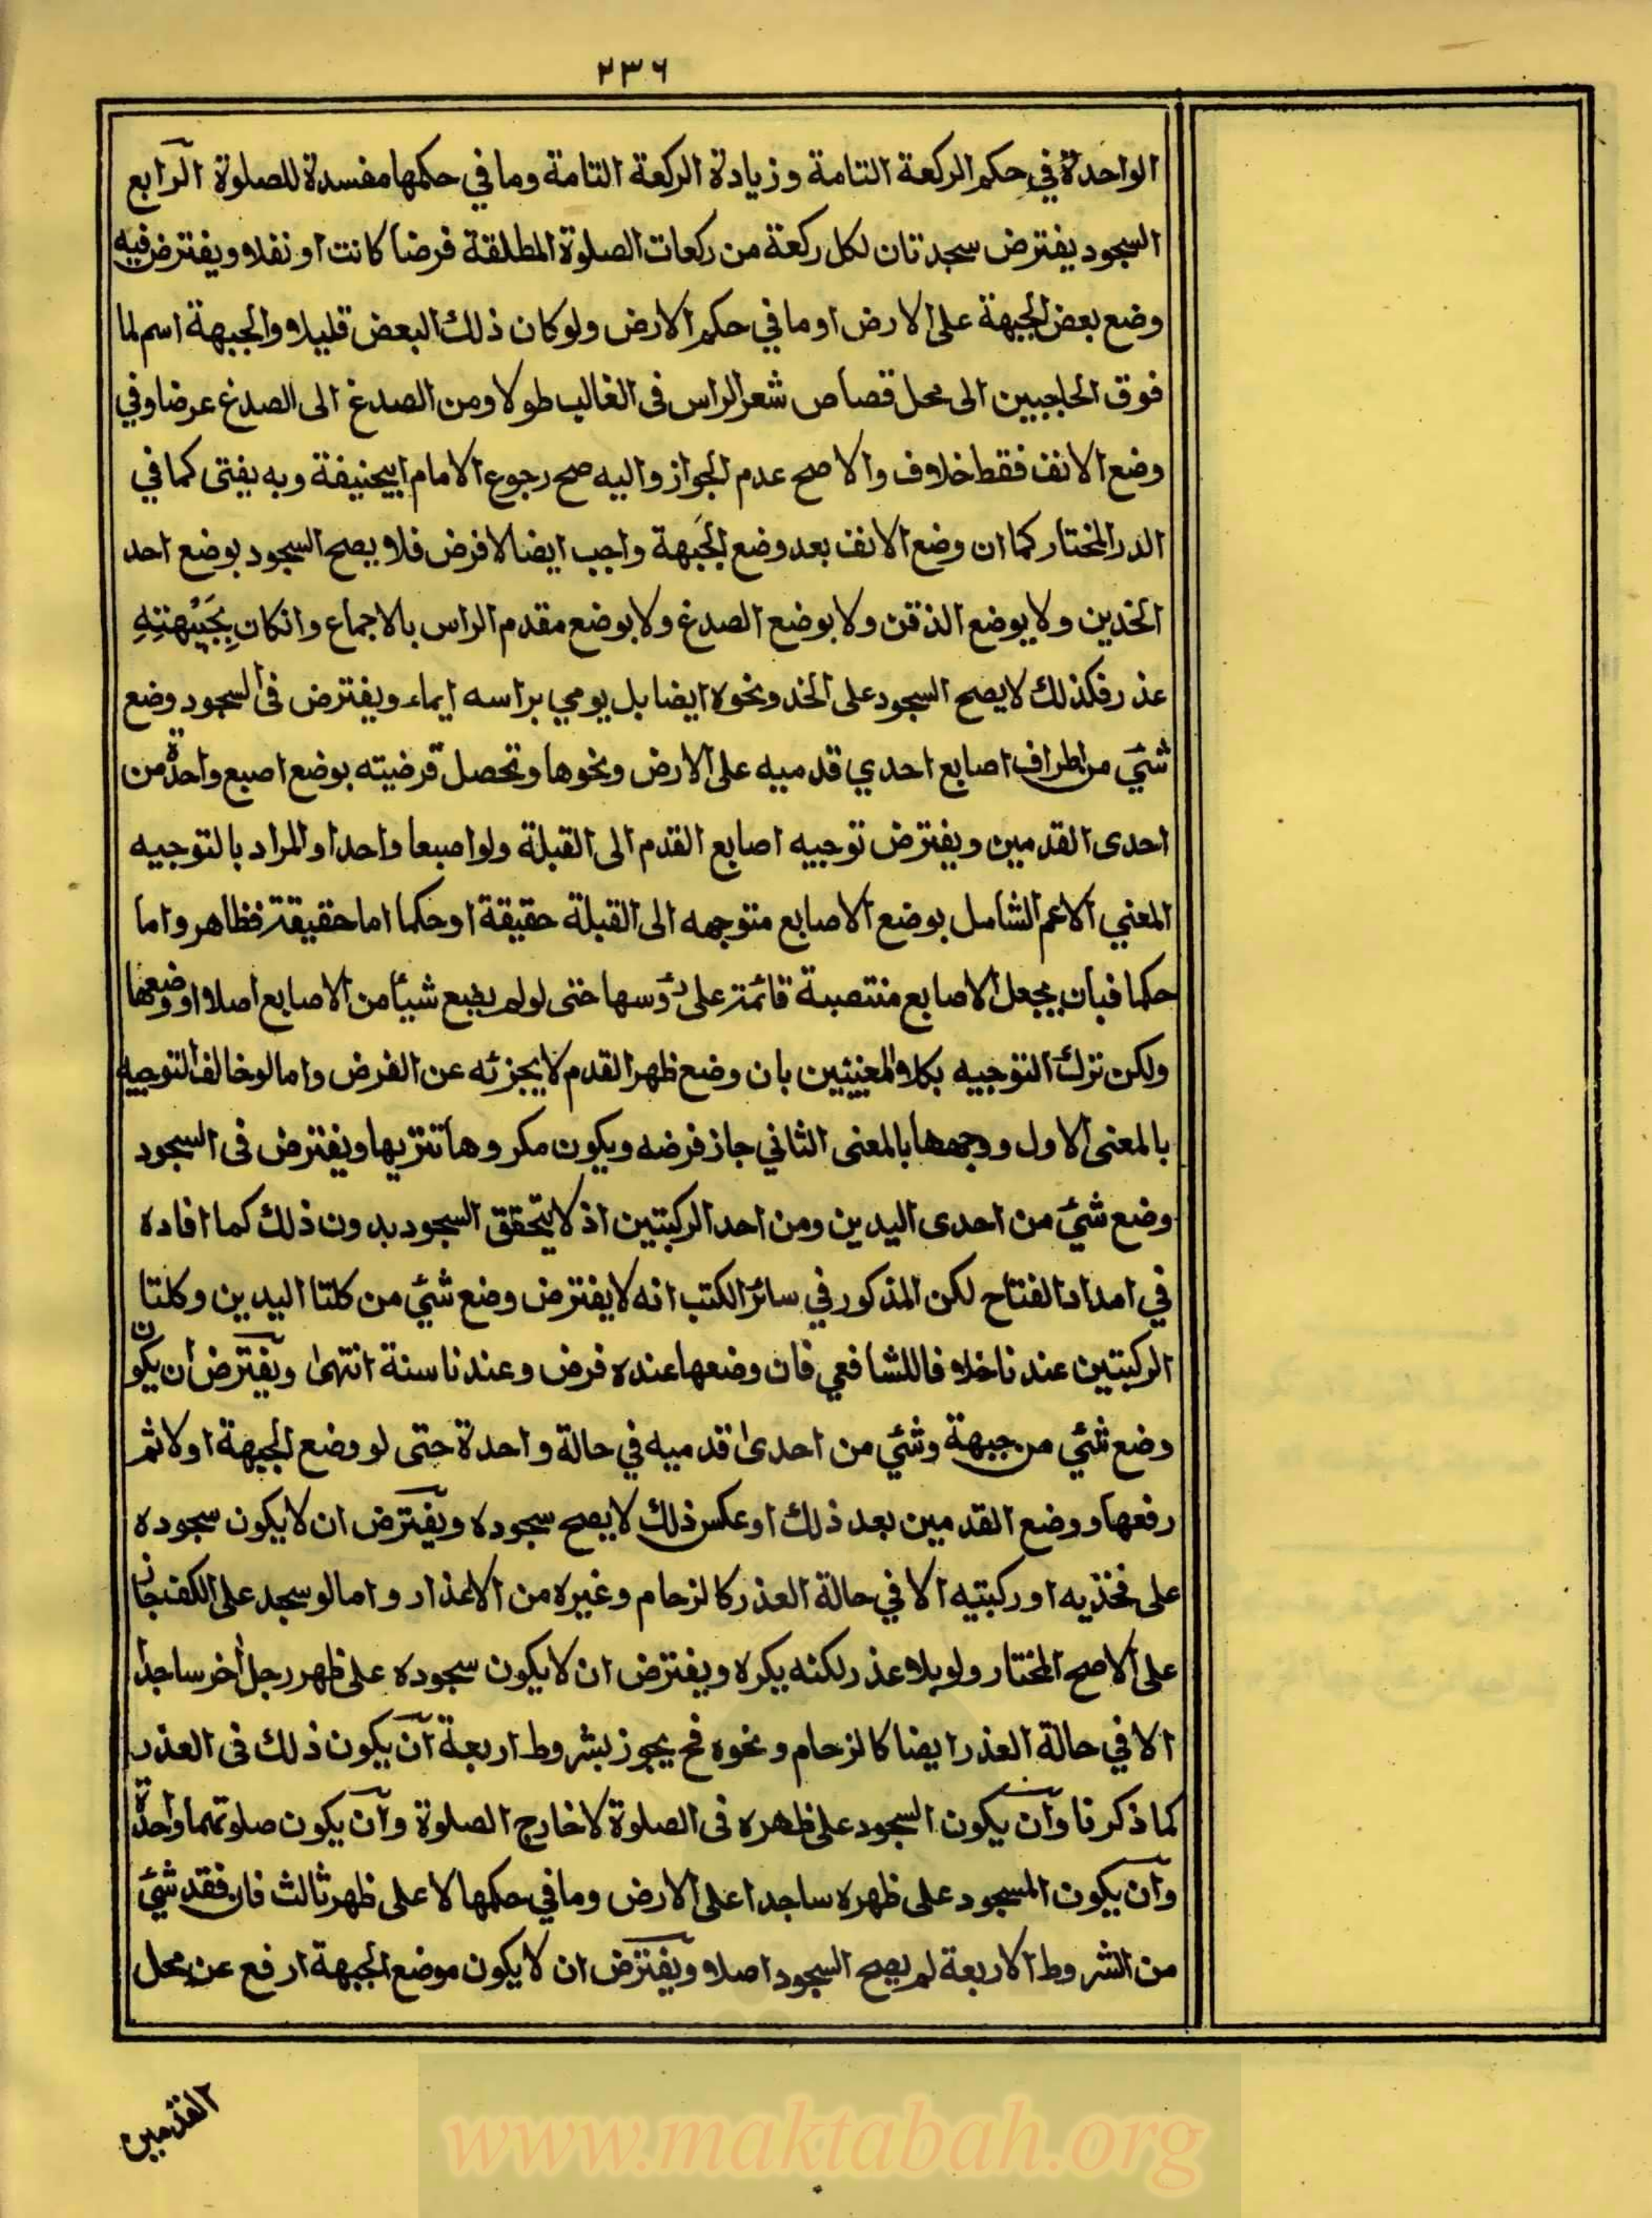 ٢٣٦
الواحدة في حكم الركعة التامة وزيادة الركعة التامة وما في حكمها مفسدة للصلوة الرابع
السجود يفترض سجدتان لكل ركعة من ركعات الصلوة المطلقة فرضا كانت او نفلا ويفترض فيه
وضع بعض الجبهة على الارض او ما في حكم الارض ولو كان ذلك البعض قليلا والجبهة اسم لما
فوق الحاجبين الى محل قصاص شعر الراس فى الغالب طولا ومن الصدغ الى الصدغ عرضا وفي
وضع الانف فقط خلاف والاصح عدم الجواز واليه صح رجوع الامام ابيحنيفة وبه يفتى كما في
الدر المختار كما ان وضع الانف بعد وضع الجَبهة واجب ايضا لا فرض فلا يصح السجود بوضع احد
الخدين ولا بوضع الذقن ولا بوضع الصدغ ولا بوضع مقدم الراس بالاجماع وانكان بِجَبْهَتِهِ
عذر فكذلك لا يصح السجود على الخد ونحوه ايضا بل يومي براسه ايماء ويفترض فى السجود وضع
شئي من اطراف اصابع احدي قدميه على الارض ونحوها وتحصل فرضيته بوضع اصبع واحدة من
احدى القدمين ويفترض توجيه اصابع القدم الى القبلة ولو اصبعا واحدا والمراد بالتوجيه
المعني الاعم الشامل بوضع الاصابع متوجهه الى القبلة حقيقة او حكما اما حقيقة فظاهر واما
حكما فبان يجعل الاصابع منتصبة قائمة على رؤسها حتى لو لم يضع شيئا من الاصابع اصلا او وضعها
ولكن ترك التوجيه بكلا المعنيين بان وضع ظهر القدم لا يجزئه عن الفرض واما لو خالف التوجيه
بالمعنى الاول ووجهها بالمعنى الثاني جاز فرضه ويكون مكروها تنزيها ويفترض فى السجود
وضع شئي من احدى اليدين ومن احد الركبتين اذ لا يتحقق السجود بدون ذلك كما افاده
في امداد الفتاح لكن المذكور في سائر الكتب انه لا يفترض وضع شئي من كلتا اليدين وكلتا
الركبتين عندنا خلافا للشافعي فان وضعها عنده فرض وعندنا سنة انتهى ويفترض ان يكون
وضع شئي من جبهة وشئي من احدى قدميه في حالة واحدة حتى لو وضع الجبهة اولا ثم
رفعها ووضع القدمين بعد ذلك او عكس ذلك لا يصح سجوده ويفترض ان لا يكون سجوده
على فخذيه او ركبتيه الا في حالة العذر كالزحام وغيره من الاعذار واما لو سجد على الكف جاز
على الاصح المختار ولو بلا عذر لكنه يكره ويفترض ان لا يكون سجوده على ظهر رجل اخر ساجدا
الا في حالة العذر ايضا كالزحام ونحوه فح يجوز بشروط اربعة ان يكون ذلك فى العذر
كما ذكرنا وان يكون السجود على ظهره فى الصلوة لا خارج الصلوة وان يكون صلوتهما واحدة
وان يكون المسجود على ظهره ساجدا على الارض وما في حكمها لا على ظهر ثالث فان فقد شئي
من الشروط الاربعة لم يصح السجود اصلا ويفترض ان لا يكون موضع الجبهة ارفع عن محل
القدمين
www.maktabah.org